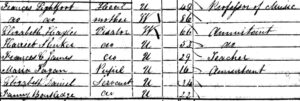 Frances Lightfoot Head U 48 Professor of Music
do do mother W 86
Elizabeth Visitor W 66 Annuitant
Harriet do U 53 do
Frances E James do U 29 Teacher
Maria Fagan Pupil U 16 Annuitant
Elizabeth Daniel Servant U 24
Fanny do U 22